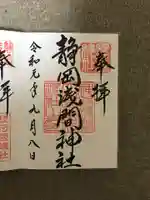 奉拝
静岡浅間神社
令和元年九月八日
奉拝